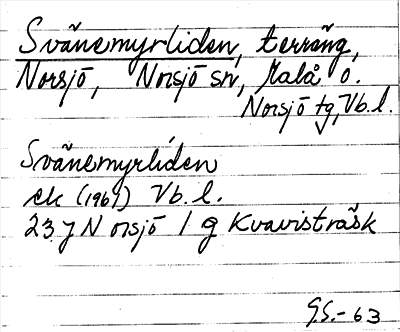 Svänemyrliden, terräng,
Norsjö, Norsjö sn, Malå o.
Norsjö tg, Vb.l.
Svänemyrliden
ek (1961) Vb.l.
23 J Norsjö 1 g Kvavisträsk
G.S.-63